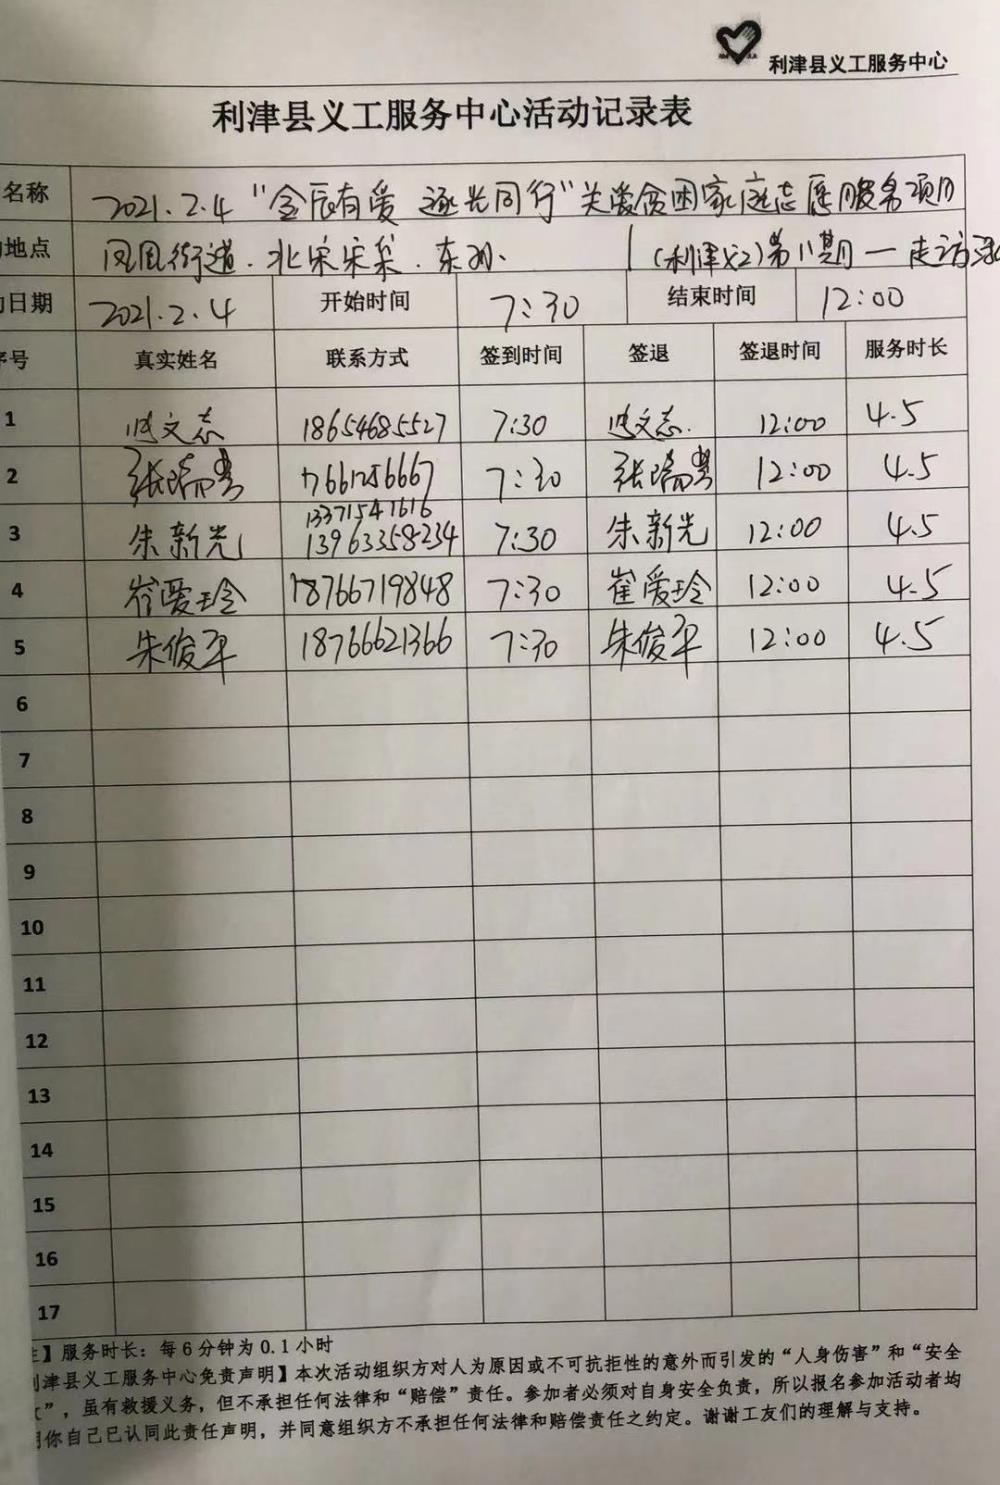 利津县义工服务中心
利津县义工服务中心活动记录表
名称 2021.2.4 “金辰有爱 逐光同行”关爱贫困家庭志愿服务项目
地点 凤凰街道.北宋宋集.东孙. (利津义工)第八期—走访
日期 2021.2.4 开始时间 7:30 结束时间 12:00
序号 真实姓名 联系方式 签到时间 签退 签退时间 服务时长
1 文志 18654685527 7:30 文志. 12:00 4.5
2 张瑞 17661256667 7:30 张瑞 12:00 4.5
13371547616
3 朱新光 13963358234 7:30 朱新光 12:00 4.5
4 崔爱玲 18766719848 7:30 崔爱玲 12:00 4.5
5 朱俊平 18766621366 7:30 朱俊平 12:00 4.5
6
7
8
9
10
11
12
13
14
15
16
17
注】服务时长：每6分钟为0.1小时
利津县义工服务中心免责声明】本次活动组织方对人为原因或不可抗拒性的意外而引发的“人身伤害”和“安全
”，虽有救援义务，但不承担任何法律和“赔偿”责任。参加者必须对自身安全负责，所以报名参加活动者均
明你自己已认同此责任声明，并同意组织方不承担任何法律和赔偿责任之约定。谢谢工友们的理解与支持。